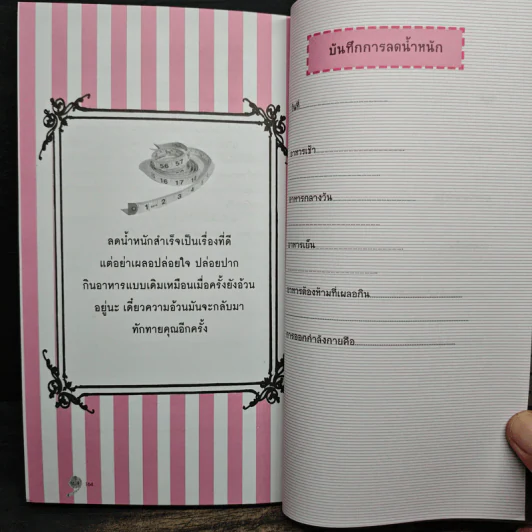 ลดน้ำหนักสำเร็จเป็นเรื่องที่ดี
แต่อย่าเผลอปล่อยใจ ปล่อยปาก
กินอาหารแบบเดิมเหมือนเมื่อครั้งยังอ้วน
อยู่นะ เดี๋ยวความอ้วนมันจะกลับมา
ทักทายคุณอีกครั้ง
บันทึกการลดน้ำหนัก
วันที่
อาหารเช้า
อาหารกลางวัน
อาหารเย็น
อาหารต้องห้ามที่เผลอกิน
การออกกำลังกายคือ